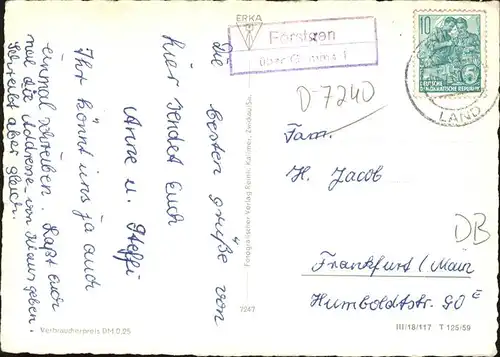 Die besten Grüße von
hier sendet Euch
Anne u. Steffi
Ihr könnt uns ja auch
einmal schreiben. Laßt Euch
nur die Addresse von Klaus geben.
Schreibt aber gleich.
Verbraucherpreis DM 0.25
ERKA
Fotografischer Verlag Reinh. Kallmer, Zwickau/Sa.
7247
Förstgen
über
D-7240
10
DEUTSCHE
DEMOKRATISCHE REPUBLIK
LAND
Fam.
H. Jacob
DB
Frankfurt / Main
Humboldtstr. 90 E
III/18/117 T 125/59